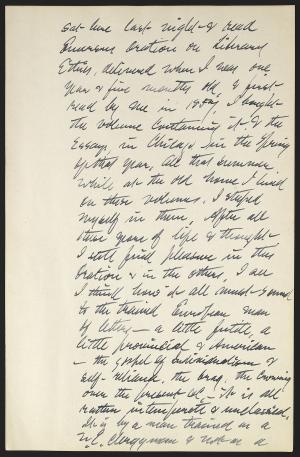 sat here last night & read
Emersons oration on Literary
Ethics, delivered when I was one
year & five months old, & first
read by me in 1857, I bought
the volume containing it & the
Essays, in Chicago, in the Spring
of that year. All that summer
while at the old home I lived
on these volumes. I steeped
myself in them. After all
these years of life & thought
I still find pleasure in this
oration & in the others. I see
I think how it all must sound
to the trained European man
of letters — a little futile, a
little provincial & American
— the gospel of individualism &
self-reliance, the brag, the crowing
over the present age — it is all
rather intemperate & unclassical.
It is by a man trained as a
N.E. Clergyman & not as a